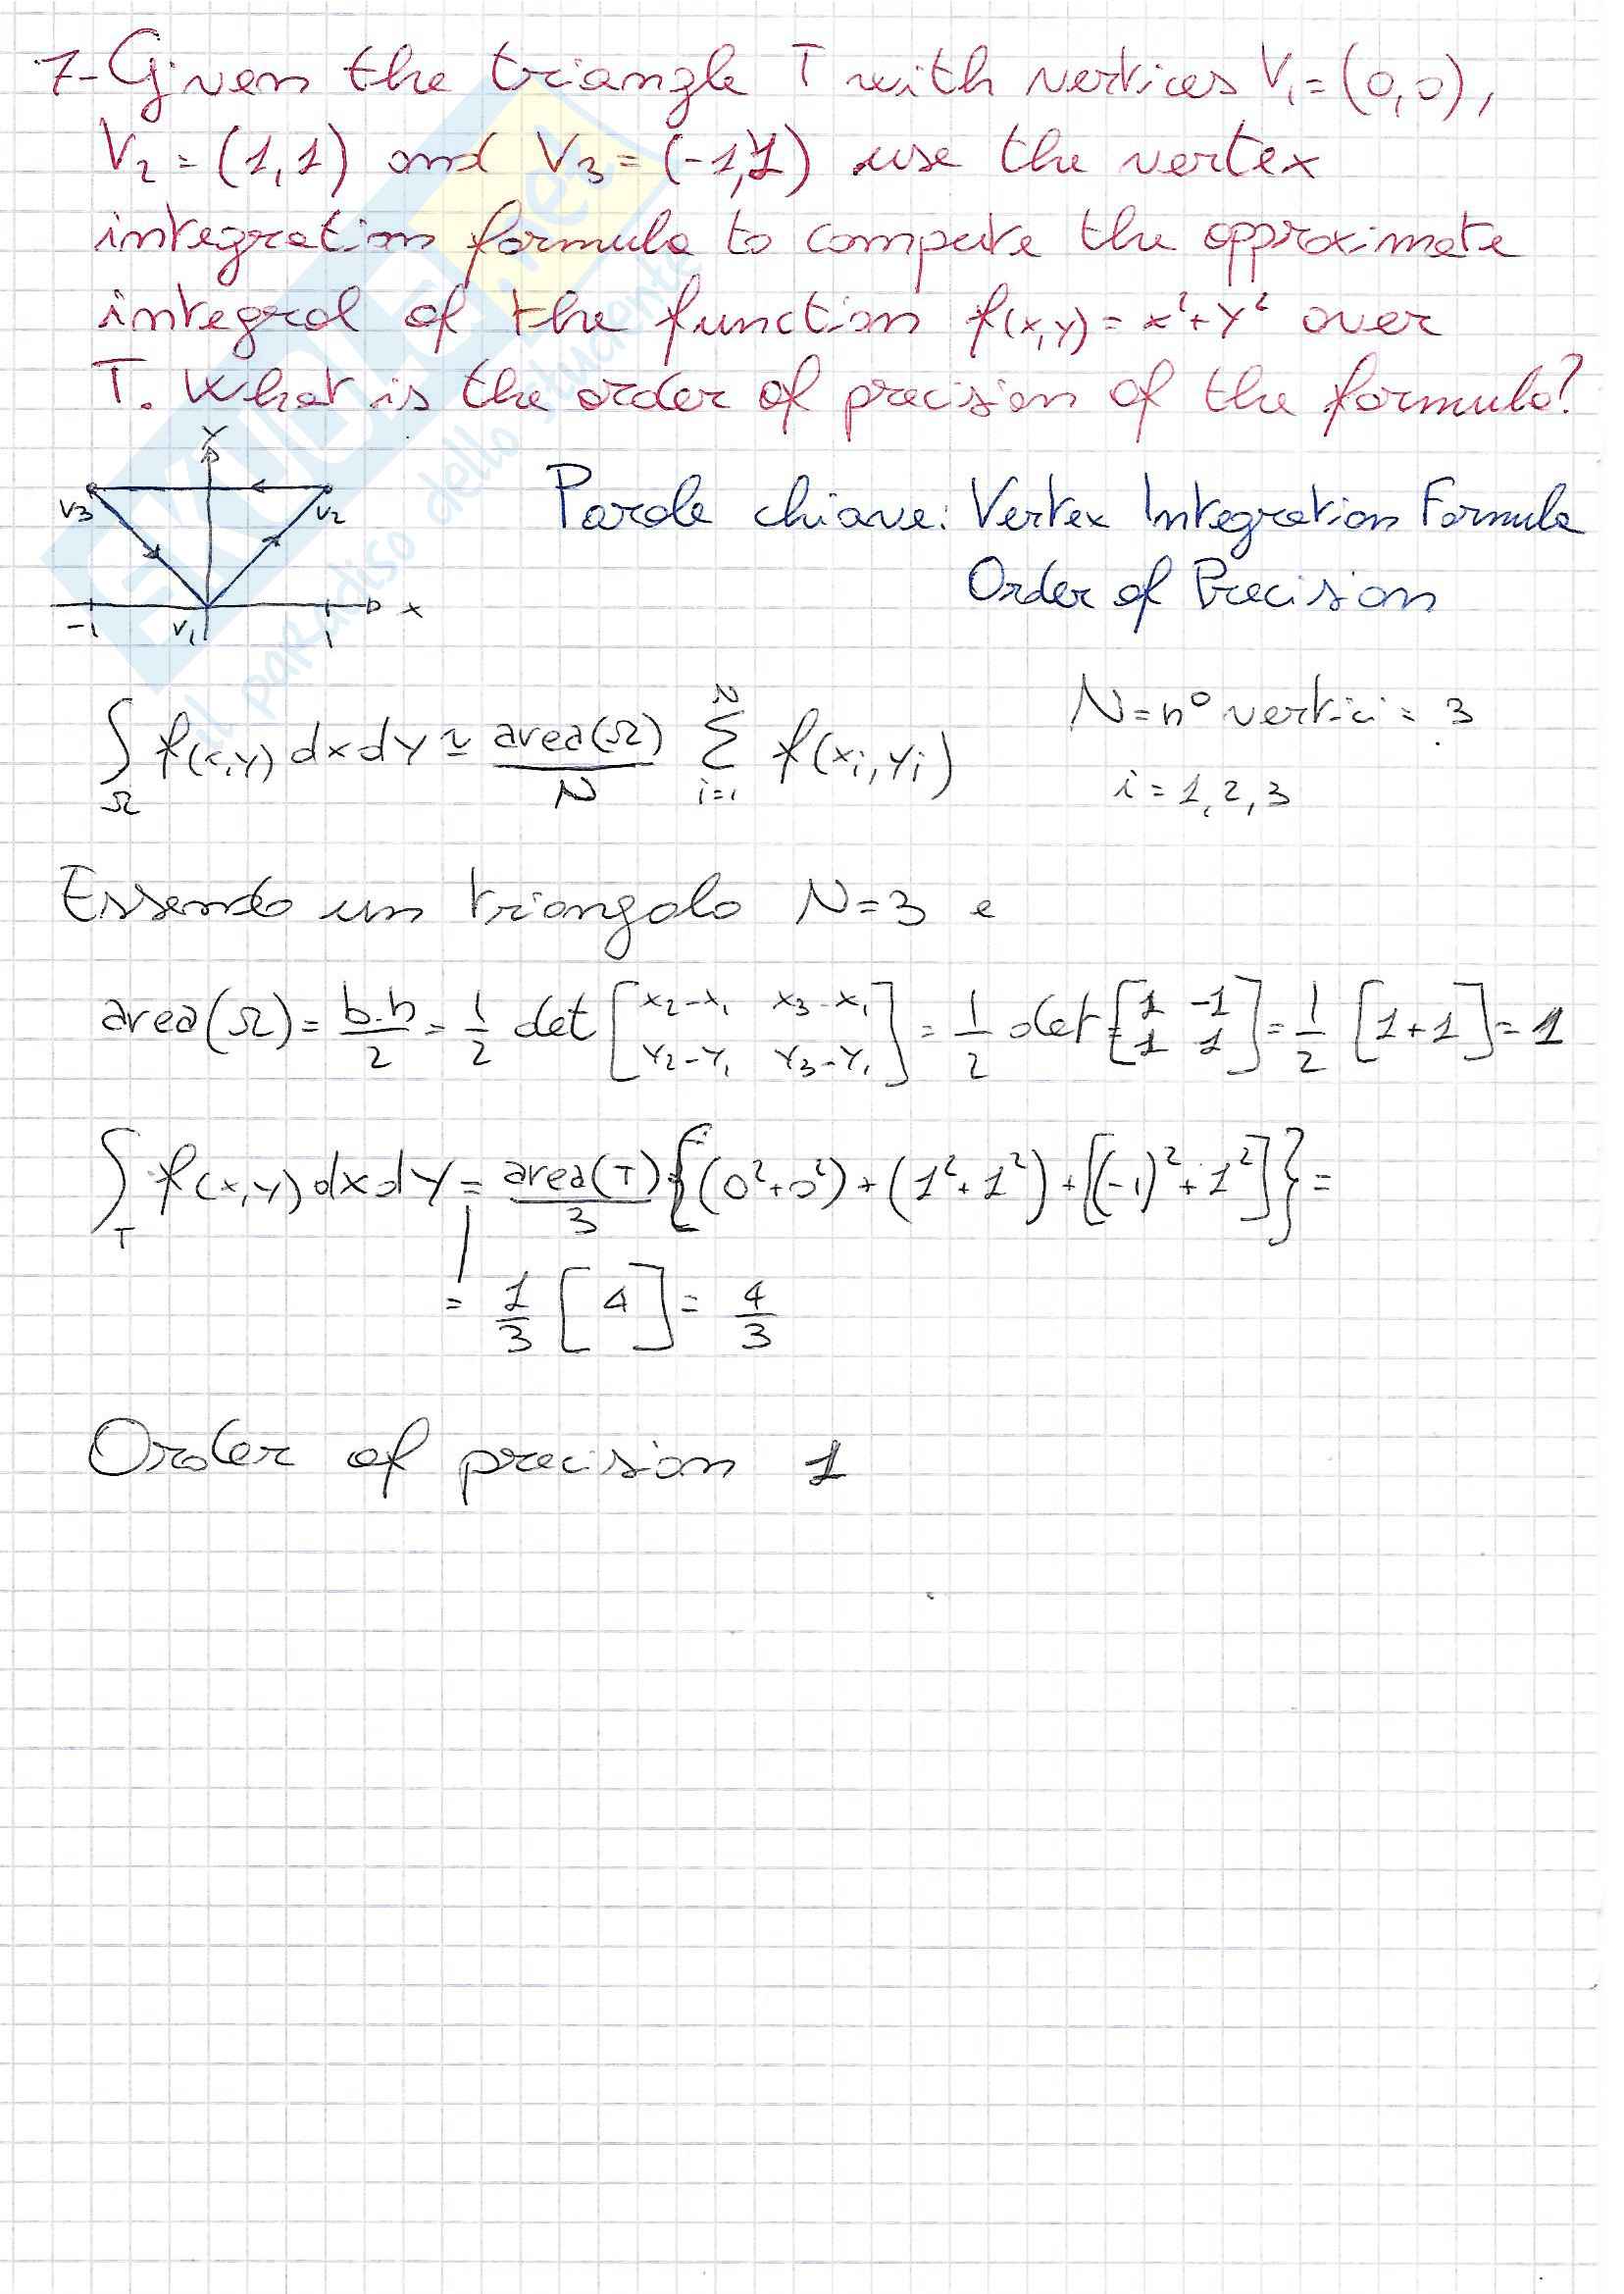 7- Given the triangle T with vertices V₁ = (0,0),
V₂ = (1,1) and V₃ = (-1,1) use the vertex
integration formula to compute the approximate
integral of the function f(x,y) = x²+y² over
T. What is the order of precision of the formula?
Y
V3
V2
-1
V1
1
x
Parole chiave: Vertex Integration Formula
Order of Precision
∫_Ω f(x,y) dxdy ≃ area(Ω)/N Σ_{i=1}^{N} f(xi, yi)
N = n° vertici = 3
i = 1, 2, 3
Essendo un triangolo N=3 e
area(Ω) = b·h/2 = 1/2 det [x2-x1 x3-x1; y2-y1 y3-y1] = 1/2 det [1 -1; 1 1] = 1/2 [1+1] = 1
∫_T f(x,y) dxdy = area(T)/3 {(0²+0²) + (1²+1²) + [(-1)²+1²]} =
= 1/3 [4] = 4/3
Order of precision 1
il paradiso dello studente